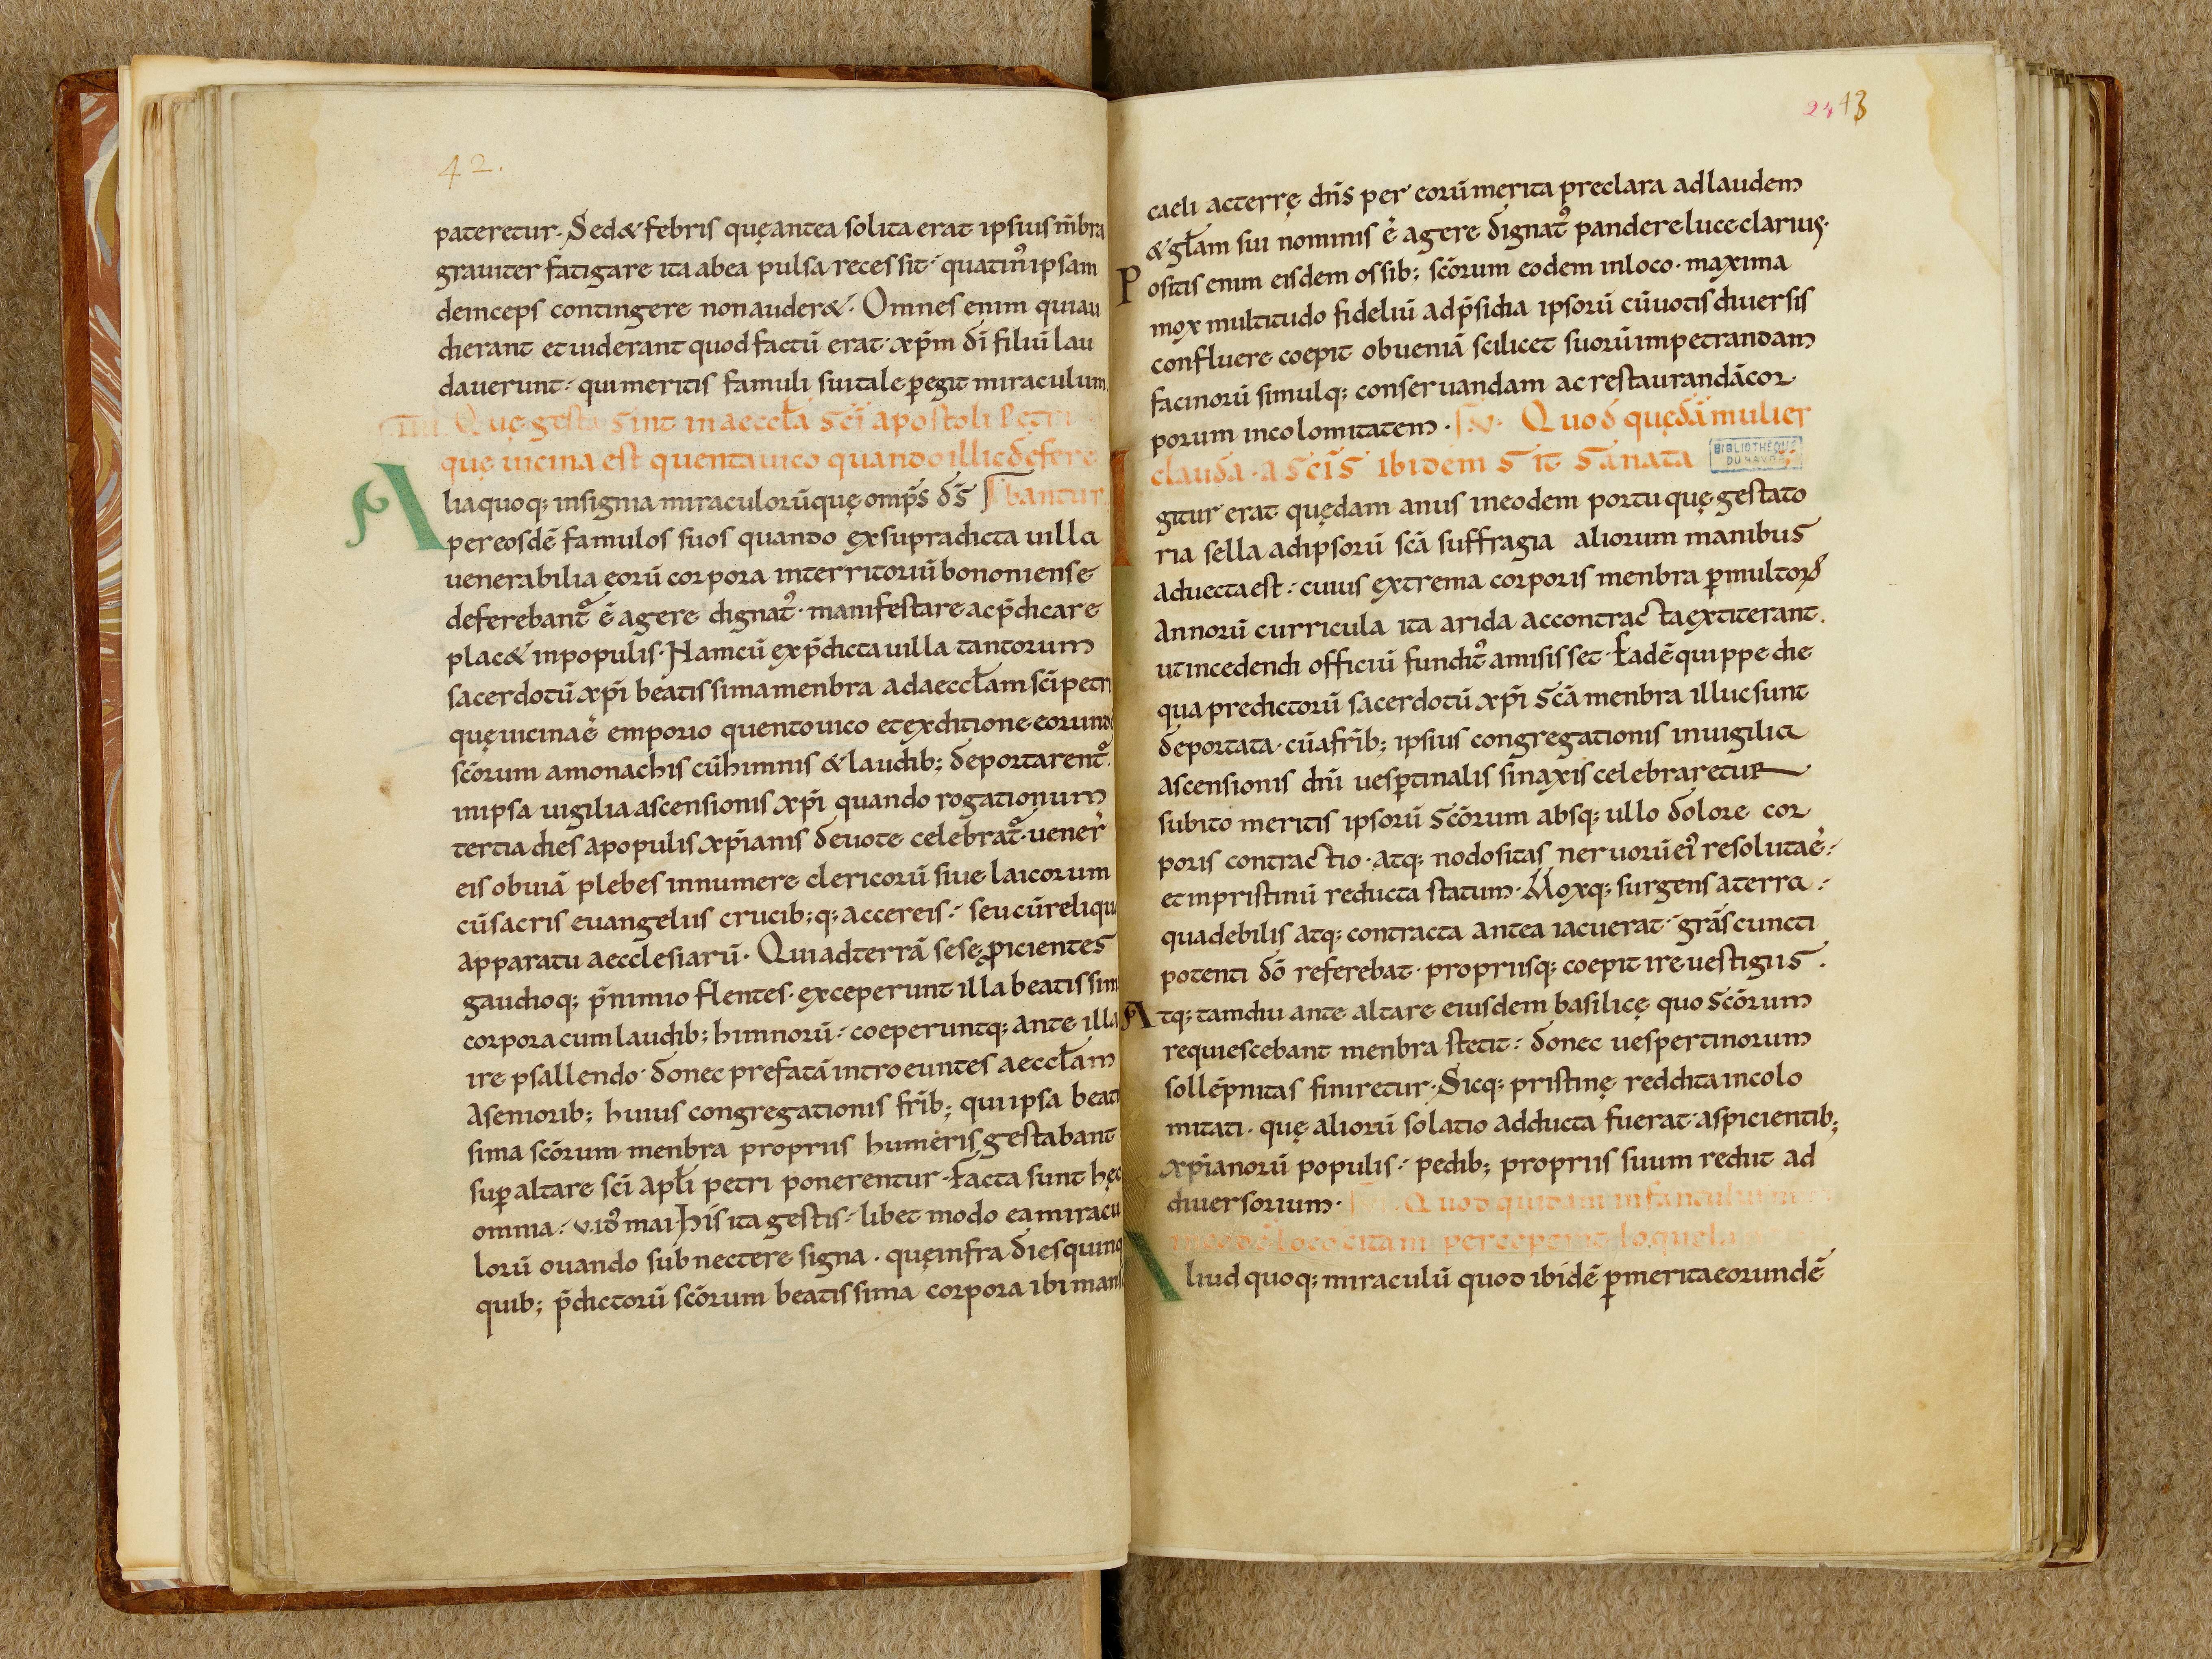 42.
pateretur. Sed & febris quę antea solita erat ipsius m̄bra
grauiter fatigare ita ab ea pulsa recessit. quatin᷒ ipsam
deinceps contingere non auder&. Omnes enim qui au
dierant et uiderant quod factū erat. xp̄m dī filiū lau
dauerunt. qui meritis famuli sui tale ꝑegit miraculum.
IIII. Quę gesta sint in aeccƚa sc̄i apostoli Petri
quę uicina est quentauico quando illic defere
bantur
Alia quoq; insignia miraculorū quę omp̄s d̄s
per eosdē famulos suos quando ex supradicta uilla
uenerabilia eorū corpora in territoriū bononiense
deferebant᷑ ē agere dignat᷒. manifestare ac p̄dicare
plac& in populis. Nam cū ex p̄dicta uilla tantorum
sacerdotū xp̄i beatissima menbra ad aeccƚam sc̄i petri
quę uicina ē emporio quentouico et ex ditione eorund
sc̄orum a monachis cū himnis & laudib; deportarent᷑.
in ipsa uigilia ascensionis xp̄i quando rogationum
tertia dies a populis xp̄ianis deuote celebrat᷑. uener̄
eis obuiā plebes innumere clericorū siue laicorum
cū sacris euangeliis crucib;q; ac cereis. seu cū reliqu
apparatu aecclesiarū. Qui ad terrā sese ꝓicientes
gaudioq; p̄ nimio flentes. exceperunt illa beatissim
corpora cum laudib; himnorū. coeperuntq; ante illa
ire psallendo. donec prefatā introeuntes aeccƚam
a seniorib; huius congregationis fr̄ib; qui ipsa beati
sima sc̄orum menbra propriis humeris gestabant
suꝑ altare sc̄i apƚi petri ponerentur. Facta sunt hęc
omnia. v. id᷒ mai. His ita gestis. libet modo ea miracu
lorū ouando subnectere signa. quę infra dies quinq
quib; p̄dictorū sc̄orum beatissima corpora ibi mans
24 43
caeli ac terrę dn̄s per eorū merita preclara ad laudem
& gƚam sui nominis ē agere dignat᷒ pandere luce clarius.
Positis enim eisdem ossib; sc̄orum eodem in loco. maxima
mox multitudo fideliū ad p̄sidia ipsorū cū uotis diuersis
confluere coepit ob ueniā scilicet suorū impetrandam
facinorū simulq; conseruandam ac restaurandā cor
porum incolomitatem. V. Quod quędā mulier
clauda. a sc̄is ibidem sit sanata
BIBLIOTHÈQUE DU HAVRE
Igitur erat quędam anus in eodem portu quę gestato
ria sella ad ipsorū sc̄a suffragia aliorum manibus
aduecta est. cuius extrema corporis menbra ꝑ multorꝝ
annorū curricula ita arida ac contracta extiterant.
ut incedendi officiū fundit᷒ amisisset. Eadē quippe die
qua predictorū sacerdotū xp̄i sc̄a menbra illuc sunt
deportata. cū a fr̄ib; ipsius congregationis in uigilia
ascensionis dn̄i uesꝑtinalis sinaxis celebraretur
subito meritis ipsorū sc̄orum absq; ullo dolore cor
poris contractio. atq; nodositas neruorū ei᷒ resoluta ē.
et in pristinū reducta statum. Moxq; surgens a terra.
qua debilis atq; contracta antea iacuerat. gr̄as cuncti
potenti dō referebat. propriisq; coepit ire uestigiis.
Atq; tamdiu ante altare eiusdem basilicę quo sc̄orum
requiescebant menbra stetit. donec uespertinorum
sollēpnitas finiretur. Sicq; pristinę reddita incolo
mitati. quę aliorū solatio adducta fuerat. aspicientib;
xp̄ianorū populis. pedib; propriis suum rediit ad
diuersorium. Quod quidam infantulum
in eodē loco citam perceperit loquela
Aliud quoq; miraculū quod ibidē ꝑ merita eorundē